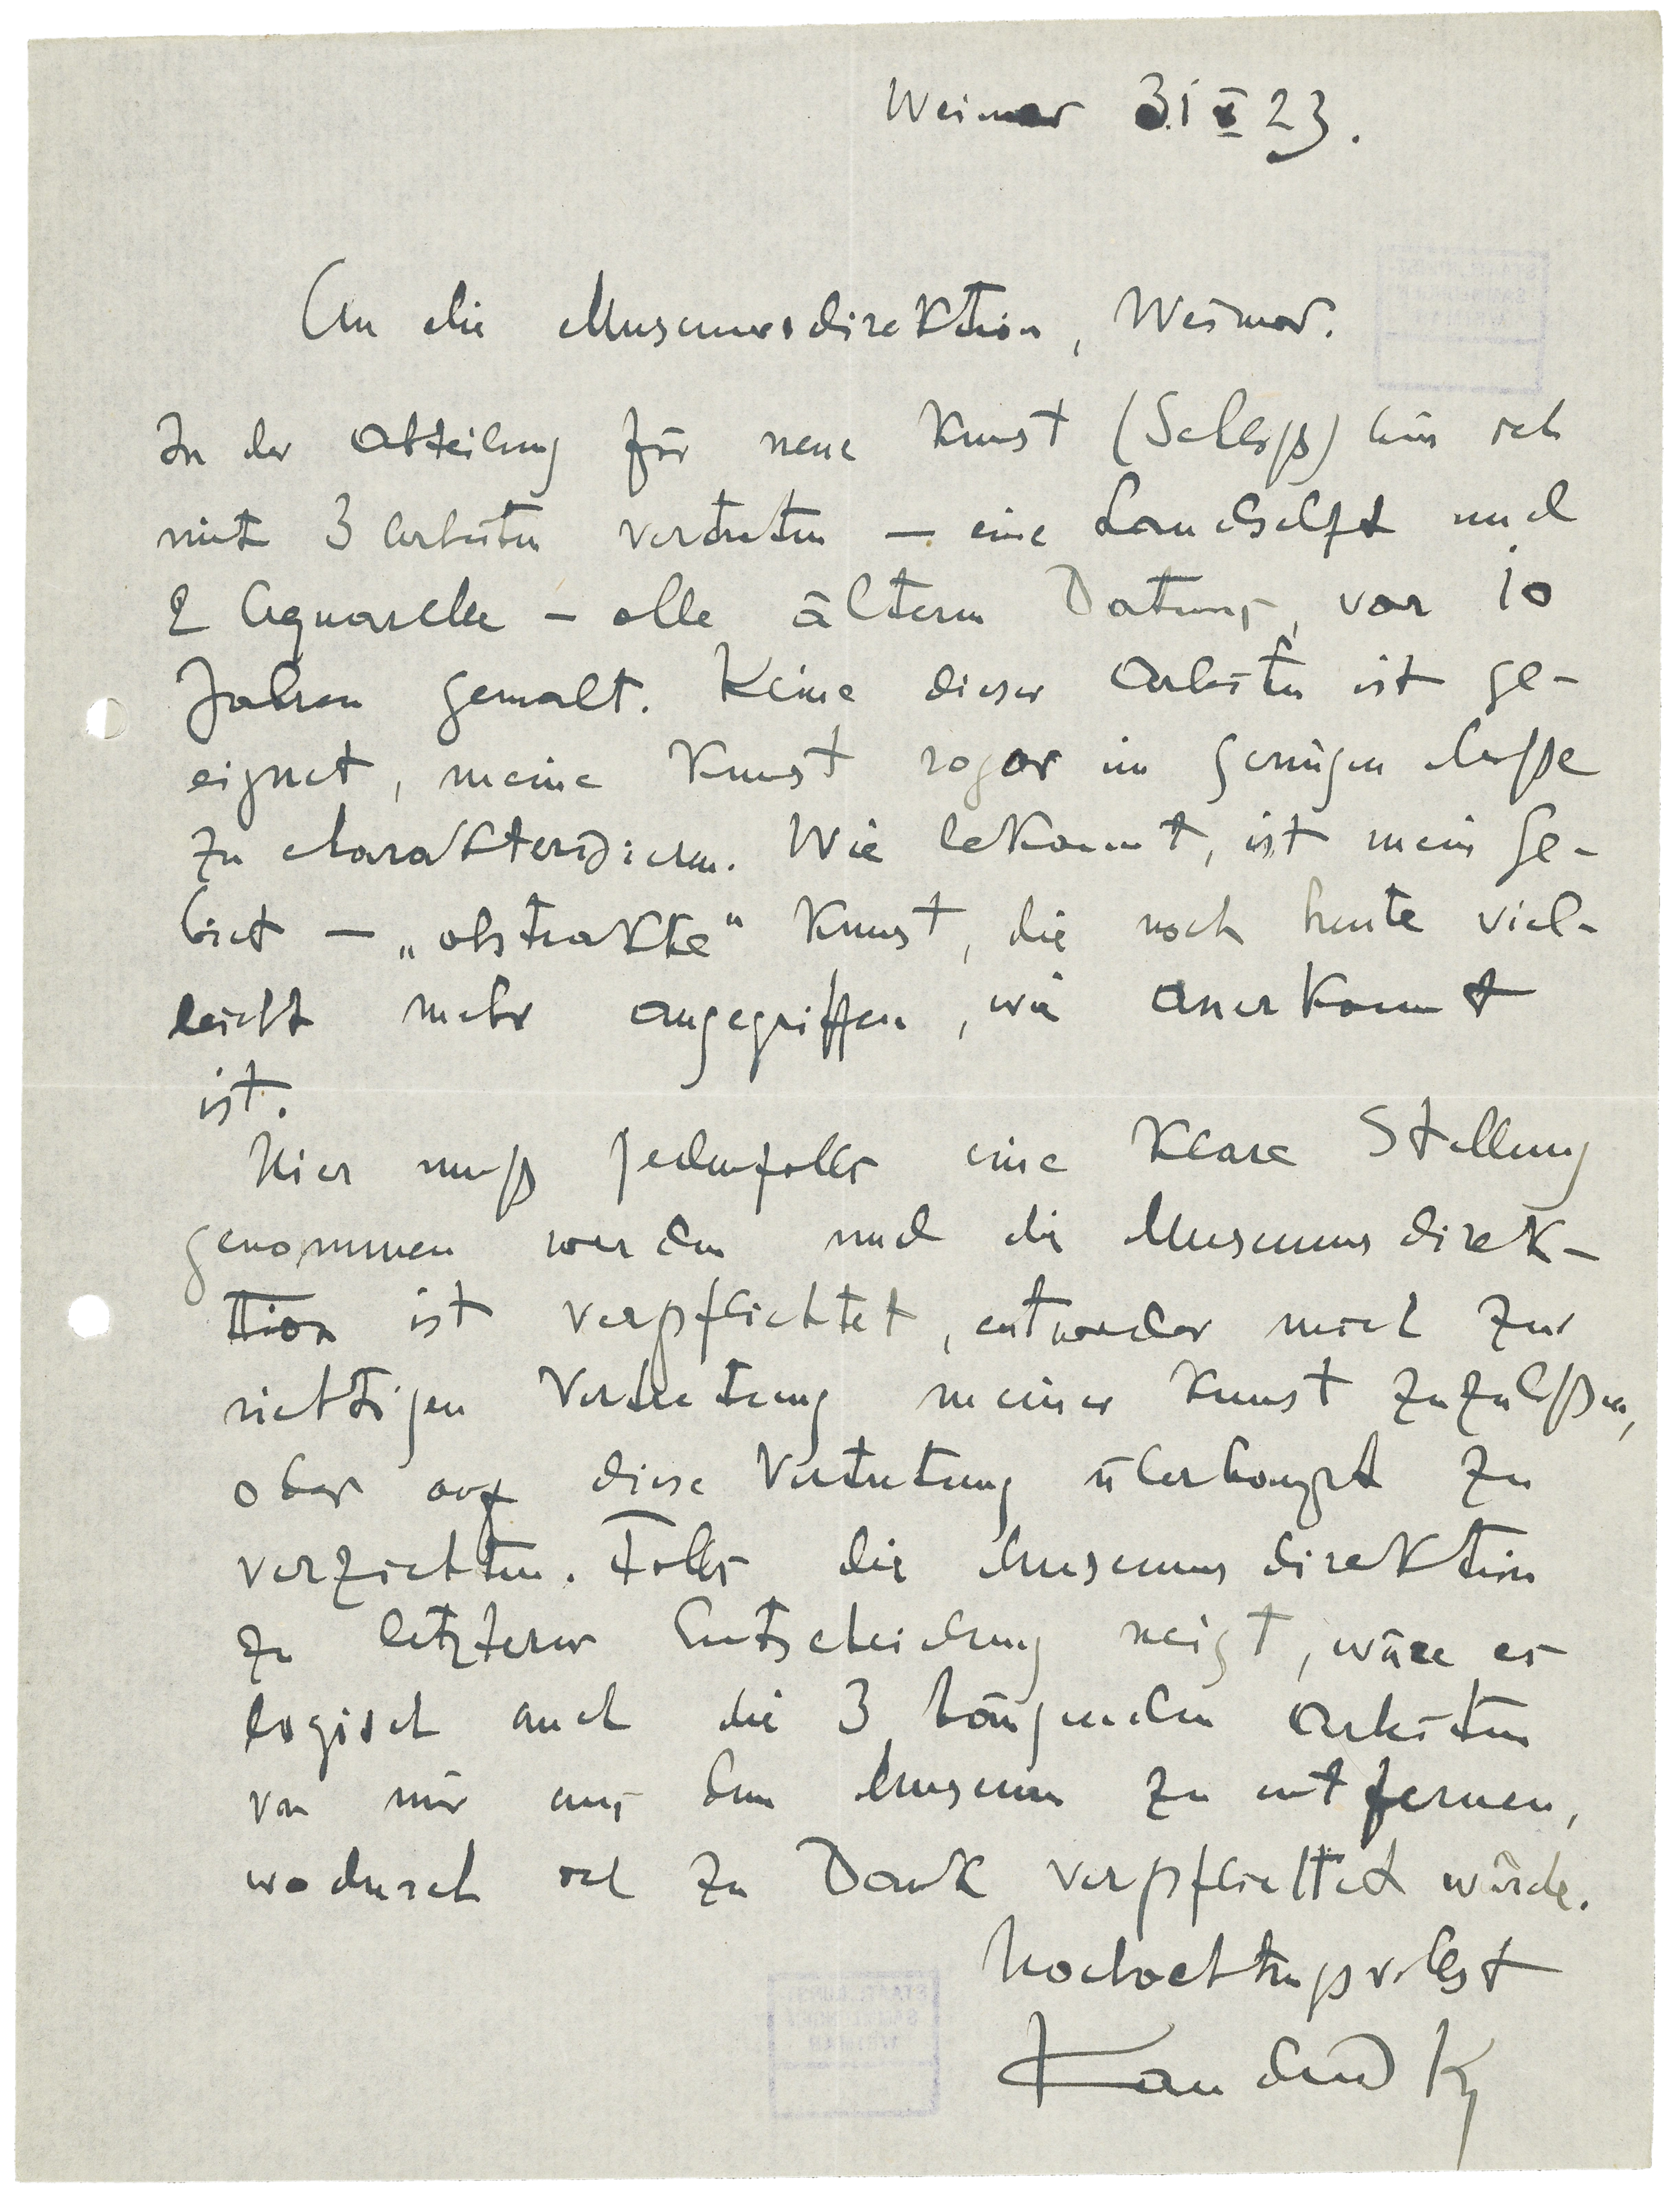 Weimar 31 X 23.
An die Museumsdirektion, Weimar.
In der Abteilung für neue Kunst (Schloß) bin ich
mit 3 Arbeiten vertreten — eine Landschaft und
2 Aquarelle – alle ältern Datums, vor 10
Jahren gemalt. Keine dieser Arbeiten ist ge-
eignet, meine Kunst sogar im genügen Maße
zu charakterisieren. Wie bekannt, ist mein Ge-
biet — „abstrakte“ Kunst, die noch heute viel-
leicht mehr angegriffen, wie anerkannt
ist.
Hier muß jedenfalls eine klare Stellung
genommen werden und die Museumsdirek-
tion ist verpflichtet, entweder mich zur
richtigen Vertretung meiner Kunst zuzulaßen,
oder auf diese Vertretung überhaupt zu
verzichten. Falls die Museumsdirektion
zu letzterer Entscheidung neigt, wäre es
logisch auch die 3 hängenden Arbeiten
von mir aus dem Museum zu entfernen,
wodurch ich zu Dank verpflichtet würde.
Hochachtungsvollst
Kandinsky